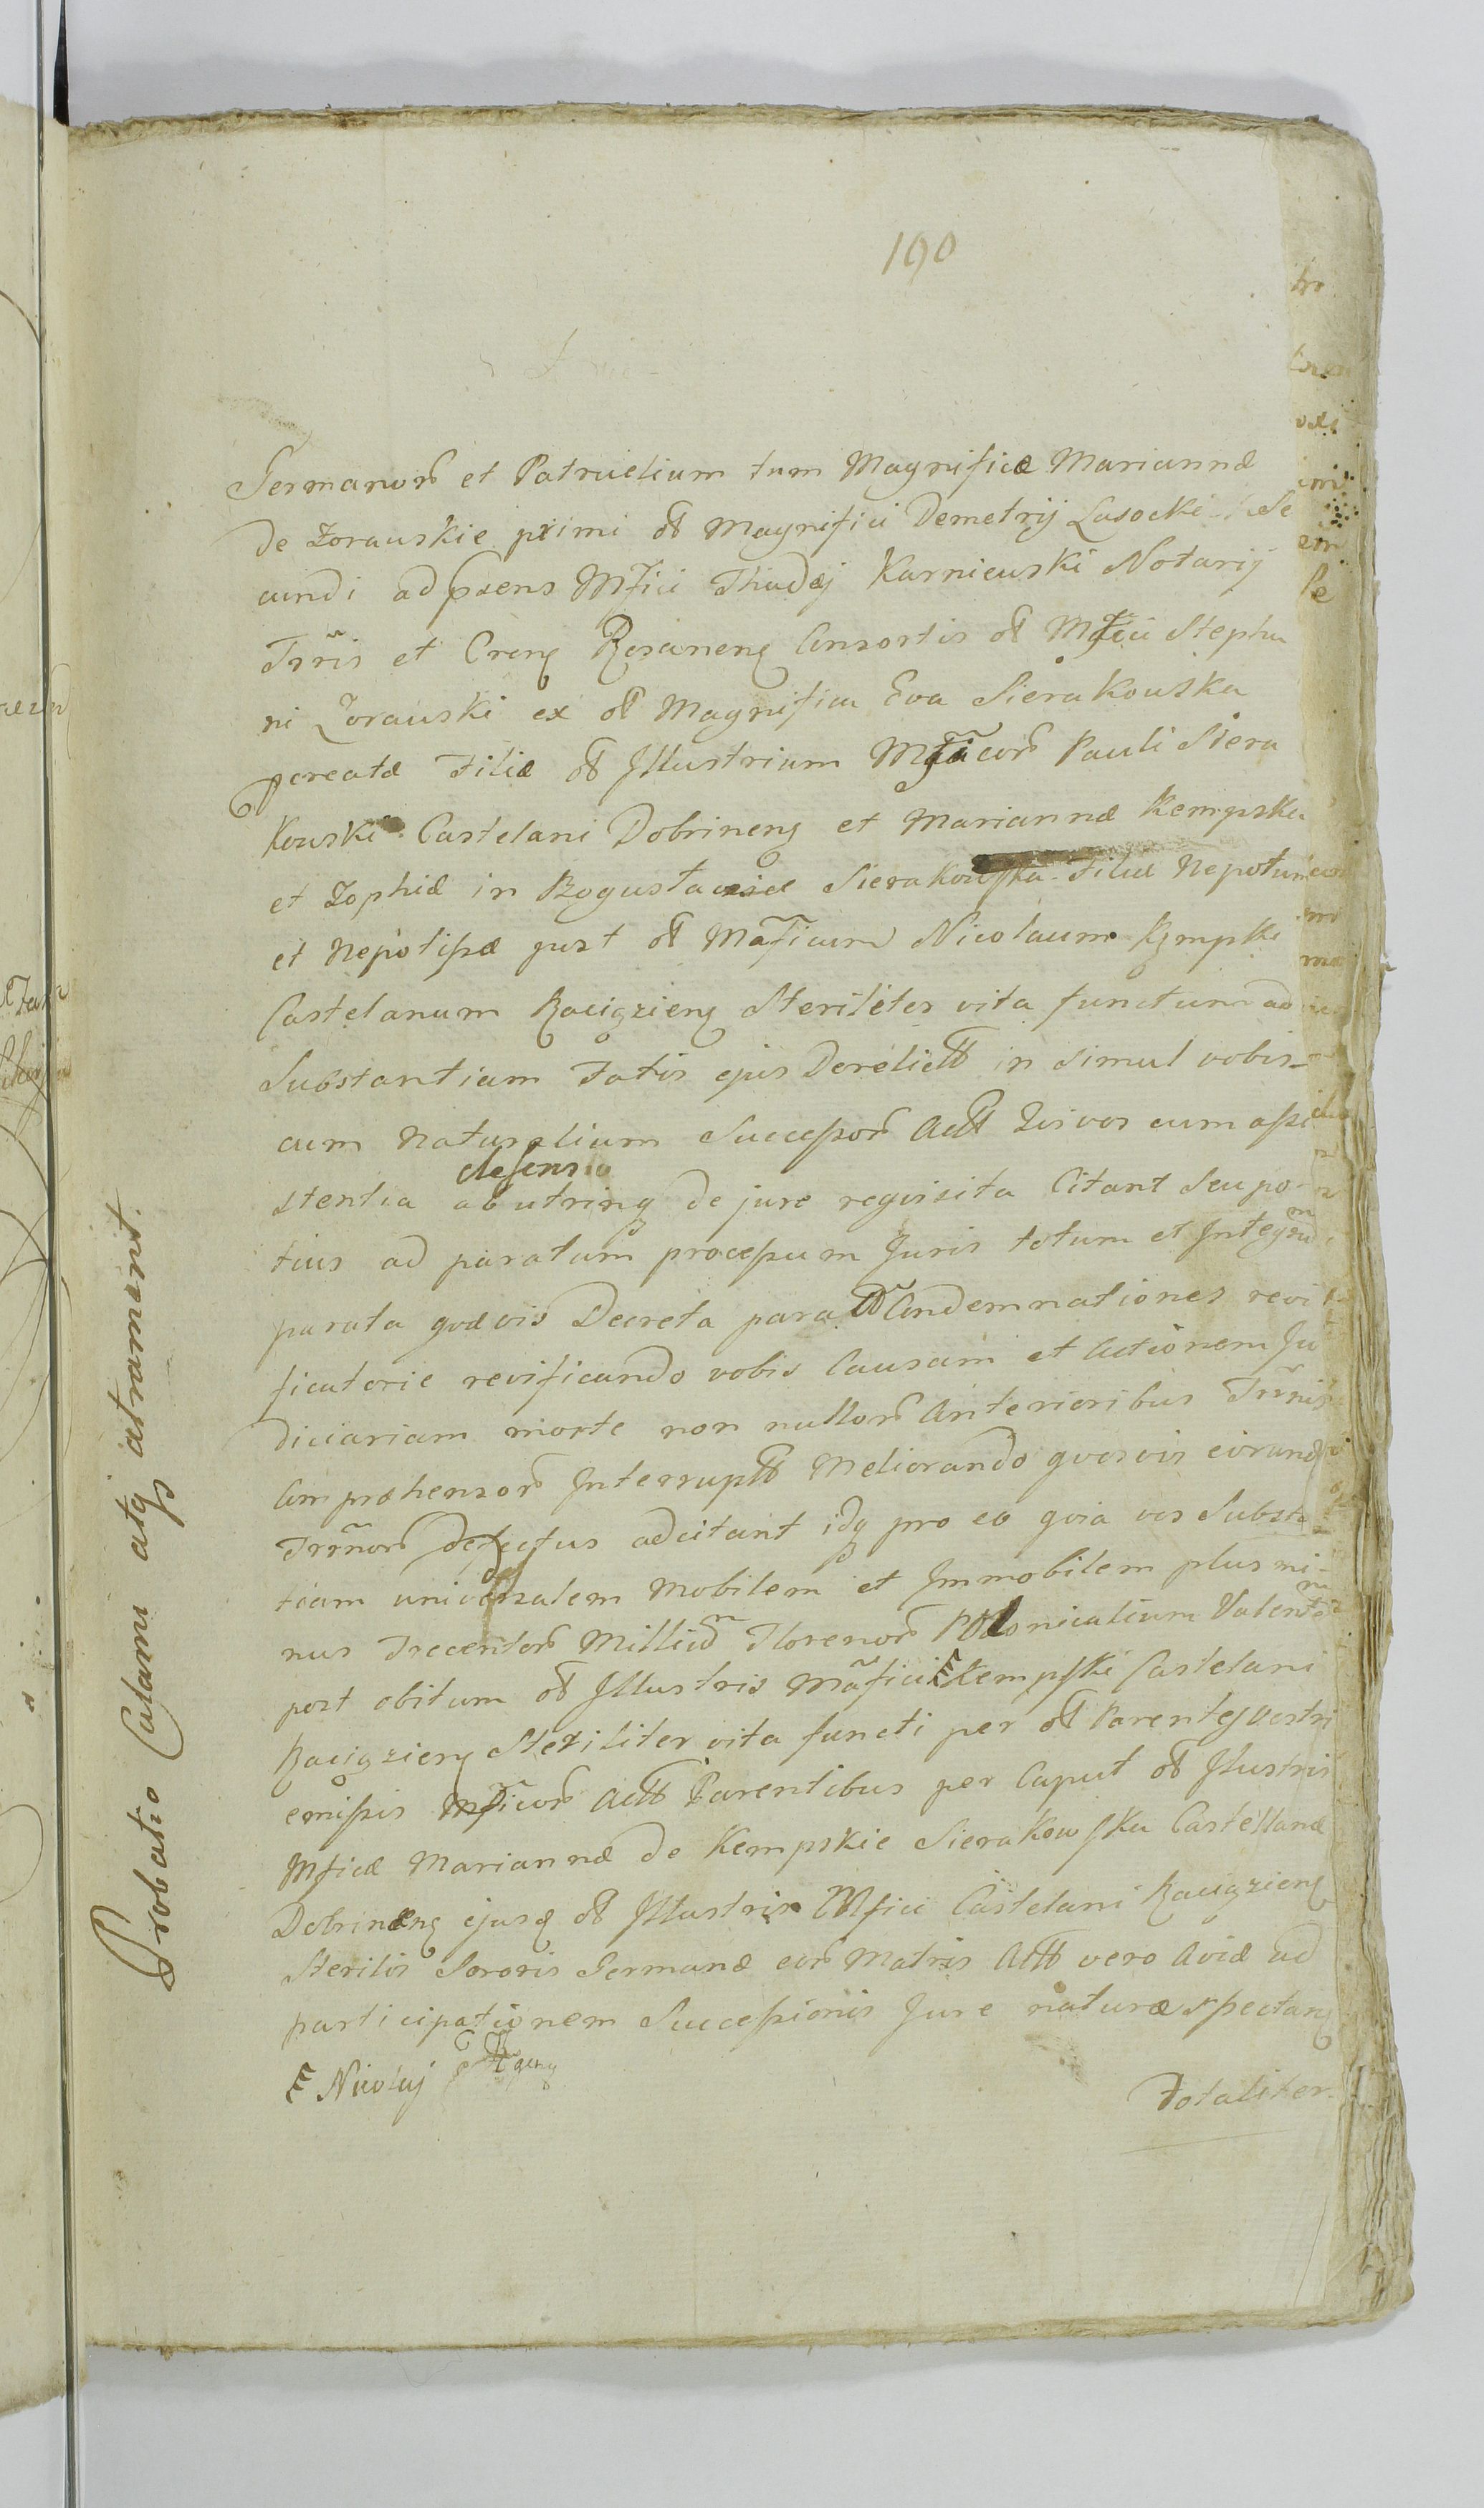 190
Germanor̃ et Patruelium tum Magnificæ Mariannæ
de Zorauskie primi ol̃ Magnifici Demetrij Lasocki Se
cundi ad p̃sens Mf̃ici Thadæj Karnieuski Notarij
Trr̃is et Cren̄g Rozaneng Consortis ol̃ Mf̃ici Stepha
ni Zorauski ex ol̃ Magnifica Eva Sierakouska
pcreatæ Filiæ ol̃ Jllustrium Mf̃icor̃ Pauli Siera
kouski Castelani Dobrineng et Mariannæ Kempska
et Zophiæ in Bogusta Sierakowska Filiæ Nepotum
et Nepotißæ post ol̃ Mãf̃icum Nicolaum Kempski
Castelanum Raciązieng Steriliter vita functum ad
Substantiam Fatis ejus Derelictt̃ in simul vobis-
cum Naturalium Succeßor̃ Actt̃ Qui vos cum aßi
stentia ab utrinq̃ de jure reqvisita Citant Seu po-
defens
tius ad paratum proceßum Juris totum et Integrum
parata qvævis Decreta paratt̃ Condemnationes revi
ficatorie revificando vobis Causam et Actionem Ju
diciariam morte non nullor̃ Anterioribus Trr̃nis
Comprehensor̃ Interruptt̃ Meliorando qvosvis eorund
Trr̃nor̃ defectus adcitant idq̃ pro eo qvia vos Substa
tiam universalem Mobilem et Immobilem plus mi-
nus Trecentor̃ Millium Florenor̃ Polonicalium Valentem
post obitum ol̃ Jllustris Mãfici Kempski Castelani
Raciązieng Steriliter vita functi per ol̃ Parentes vestri
emißis Mf̃icor̃ Actt̃ Parentibus per Caput ol̃ Jllustris
Mficæ Mariannæ de Kempskie Sierakowska Castellanæ
Dobrineng ejusq̃ ol̃ Jllustris Mfici Castelani Raciązieng
Sterilis Sororis Germanæ eor̃ Matris Actt̃ vero Aviæ ad
participationem Succeßionis Jure naturæ spectang
Nicolaj
Totaliter.
Probatio Calami atq̃ atrament.